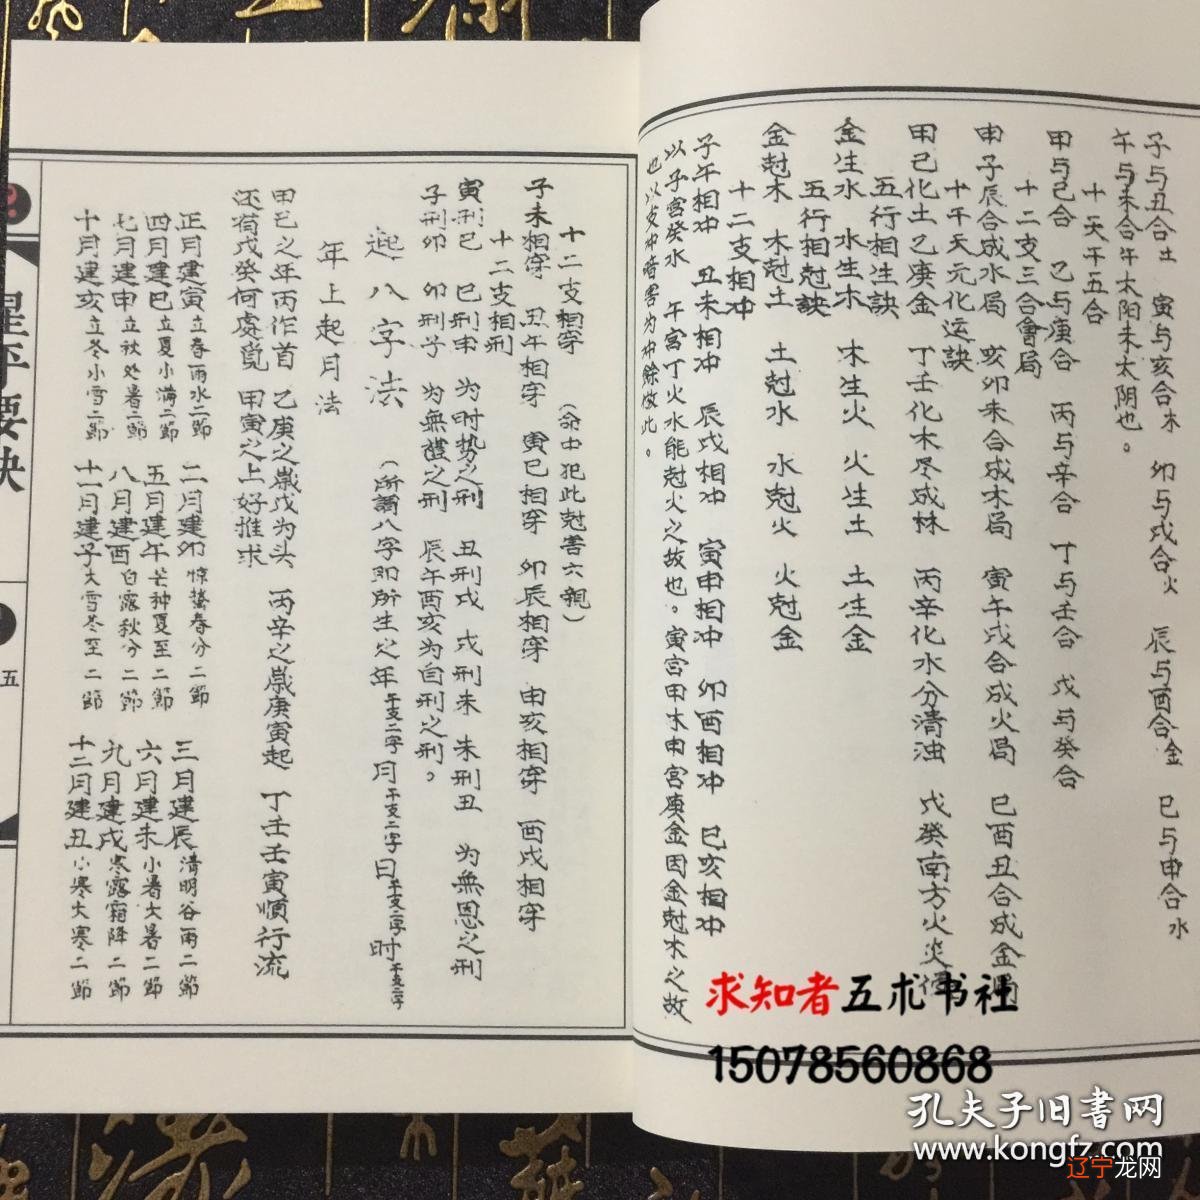 子与丑合土 寅与亥合木 卯与戌合火 辰与酉合金 巳与申合水
午与未合午太阳未太阴也。
十天干五合
甲与己合 乙与庚合 丙与辛合 丁与壬合 戊与癸合
十二支三合會局
申子辰合成水局 亥卯未合成木局 寅午戌合成火局 巳酉丑合成金局
十干天元化运訣
甲己化土乙庚金 丁壬化木尽成林 丙辛化水分清浊 戊癸南方火炎
五行相生訣
金生水 水生木 木生火 火生土 土生金
五行相尅訣
金尅木 木尅土 土尅水 水尅火 火尅金
十二支相冲
子午相冲 丑未相冲 辰戌相冲 寅申相冲 卯酉相冲 巳亥相冲
以子宫癸水 午宫丁火水能尅火之故也。寅宫甲木申宫庚金因金尅木之故
也以支冲暗害为冲餘倣此。
十二支相穿 (命中犯此尅害六親)
子未相穿 丑午相穿 寅巳相穿 卯辰相穿 申亥相穿 酉戌相穿
十二支相刑
寅刑巳 巳刑申 为时势之刑 丑刑戌 戌刑未 未刑丑 为無恩之刑
子刑卯 卯刑子 为無禮之刑 辰午酉亥为自刑之刑。
起八字法 (所謂八字即所生之年干支二字月干支二字日干支二字时干支二字
年上起月法
甲己之年丙作首 乙庚之歳戊为头 丙辛之歳庚寅起 丁壬壬寅順行流
还有戊癸何處覓 甲寅之上好推求
正月建寅立春雨水二節 二月建卯惊蟄春分二節 三月建辰清明谷雨二節
四月建巳立夏小满二節 五月建午芒种夏至二節 六月建未小暑大暑二節
七月建申立秋处暑二節 八月建酉白露秋分二節 九月建戌寒露霜降二節
十月建亥立冬小雪二節 十一月建子大雪冬至二節 十二月建丑小寒大寒二節
星平要訣
五
求知者五术书社
15078560868
孔夫子旧书网
www.kongfz.com
辽宁龙网